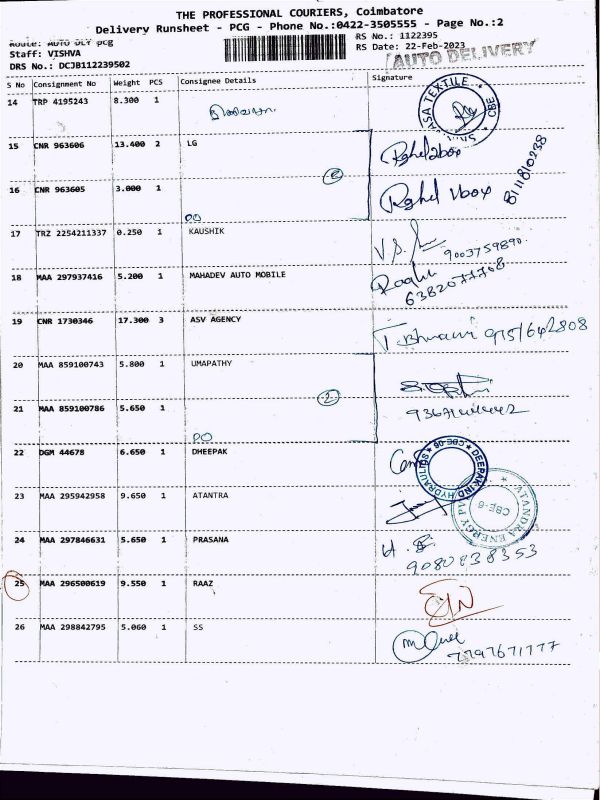 THE PROFESSIONAL COURIERS, Coimbatore
Delivery Runsheet - PCG - Phone No.:0422-3505555 - Page No.:2
Route: AUTO DLY pcg
RS No.: 1122395
Staff: VISHVA
RS Date: 22-Feb-2023
AUTO DELIVERY
DRS No.: DCJB112239502
S No Consignment No Weight PCS Consignee Details Signature
14 TRP 4195243 8.300 1
15 CNR 963606 13.400 2 LG
16 CNR 963605 3.000 1
17 TRZ 2254211337 0.250 1 KAUSHIK
9003759890
18 MAA 297937416 5.200 1 MAHADEV AUTO MOBILE
6382077708
19 CNR 1730346 17.300 3 ASV AGENCY
20 MAA 859100743 5.800 1 UMAPATHY
21 MAA 859100786 5.650 1
22 DGM 44678 6.650 1 DHEEPAK
23 MAA 295942958 9.650 1 ATANTRA
24 MAA 297846631 5.650 1 PRASANA
9080838353
25 MAA 296500619 9.550 1 RAAZ
26 MAA 298842795 5.060 1 SS